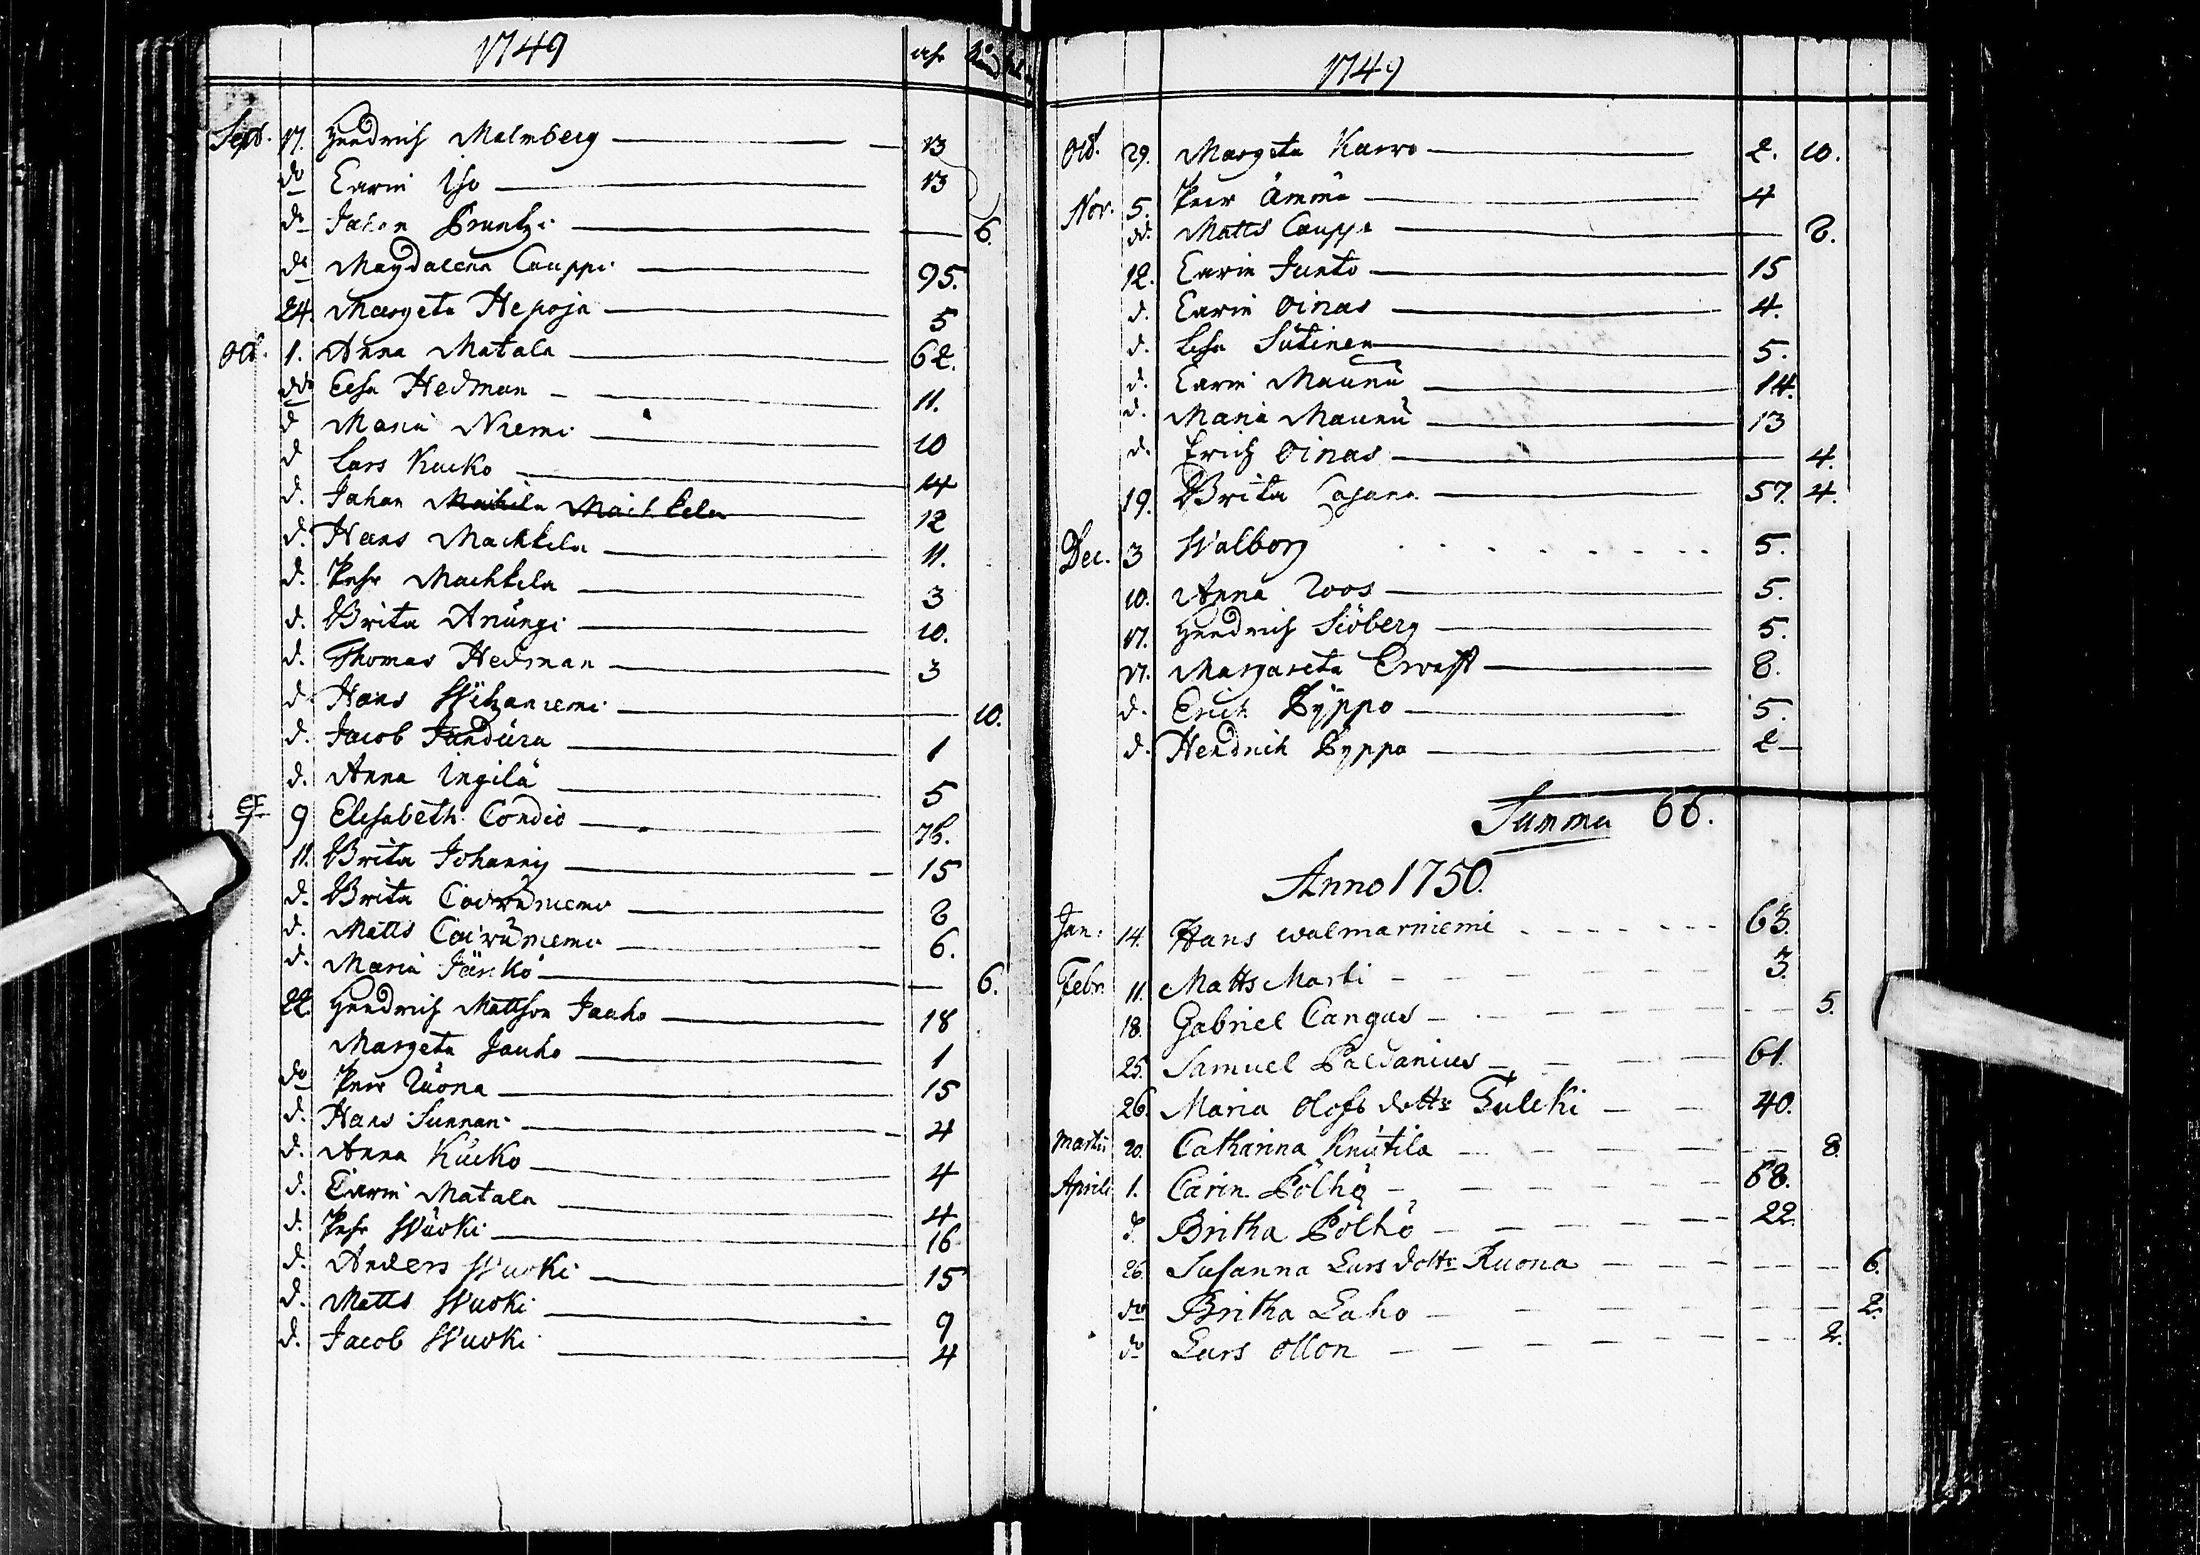 1749
åhr
Sept. 17. Hendrich Malmberg 13
do Carin Iso 13
do Johan Pruntzi 6.
do Magdalena Cauppi 95.
24. Margeta Hepoja 5
Oct. 1. Anna Matala 62.
do Elsa Hedman 11.
d Maria Niemi 10
d Lars Kucko 14
d. Johan Machkela 12
d. Hans Machkela 11.
d. Pehr Machkela 3
d. Brita Anungi 10.
d. Thomas Hedman 3
d Hans Witzaniemi 10.
d. Jacob Jundura 1
d. Anna Ingilä 5
9 Elisabeth Condio 76.
11. Brita Johanny 15
d. Brita Coivuniemi 8
d. Matts Coivuniemi 6.
d. Maria Jänkö 6.
22. Hendrich Mattson Jauho 18
Margeta Jauho 1
do Peer Ruona 15
d. Hans Sunnari 4
d. Anna Kucko 4
d. Carin Matala 4
d. Pehr Wuoki 16
d. Anders Wuoki 15
d. Matts Wuoki 9
d. Jacob Wuoki 4
1749
Oct. 29. Margeta Karro 2. 10.
Nov. 5. Peer Ämmä 4
do. Matts Cauppi 8.
12. Carin Junto 15
d. Carin Oinas 4.
d. Lisa Sutinen 5.
d. Carin Maunu 14.
d. Maria Maunu 13
d. Erich Oinas 4.
19. Brita Cajana 57. 4.
Dec. 3 Walborg 5.
10. Anna Roos 5.
17. Hendrich Siöberg 5.
17. Margareta Ervast 8.
d. Erich Pyppo 5.
d. Hendrich Pyppo 2
Summa 66.
Anno 1750.
Jan. 14. Hans walmarniemi 63.
Febr. 11. Matts Marti 3.
18. Gabriel Cangas 5.
25. Samuel Paldanius 61.
26. Maria Olofs dotter Tulcki 40.
Martii 20. Catharina Knutila 8.
Aprili 1. Carin Pölhö 68.
d. Britha Pölhö 22.
26. Susanna Lars dotter Ruona 6.
do Britha Laho 2.
do Lars Ollon 2.